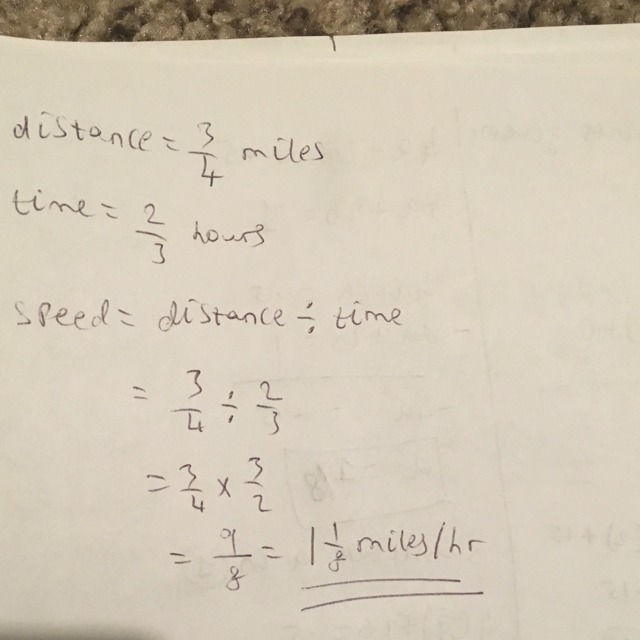 distance = 3/4 miles
time = 2/3 hours
speed = distance ÷ time
= 3/4 ÷ 2/3
= 3/4 × 3/2
= 9/8 = 1 1/8 miles/hr